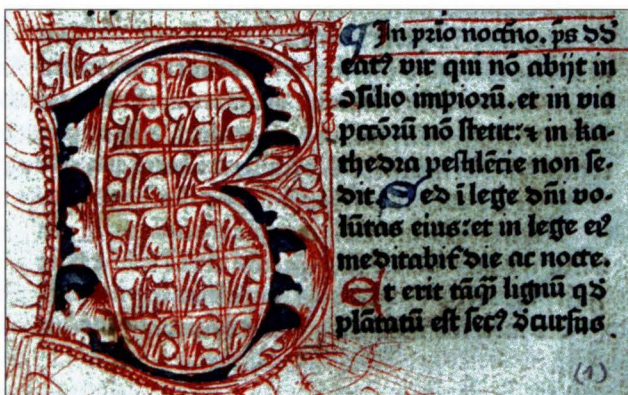 B
In prīo noctn̄o. ps̄ dd̄
eatꝰ vir qui nō abijt in
ↄsilio impiorū. et in via
pctōrū nō stetit: ⁊ in ka-
thedra pestilēcie non se-
dit Sed ī lege dn̄i vo-
lūtas eius: et in lege eiꝰ
meditabit̄ die ac nocte.
Et erit tāqꝫ lignū qd̄
plātatū est secꝰ dcursus
(1)